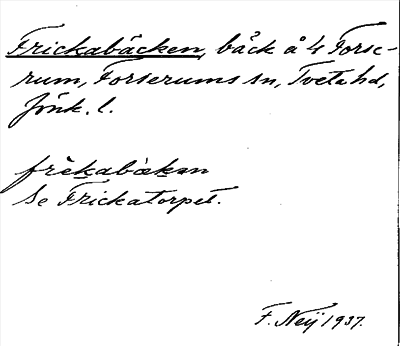 Frickabäcken, bäck å 4 Forse-
rum, Forserums sn, Tveta hd,
Jönk. l.
frèkabàkən
Se Frickatorpet.
F. Neij 1937.